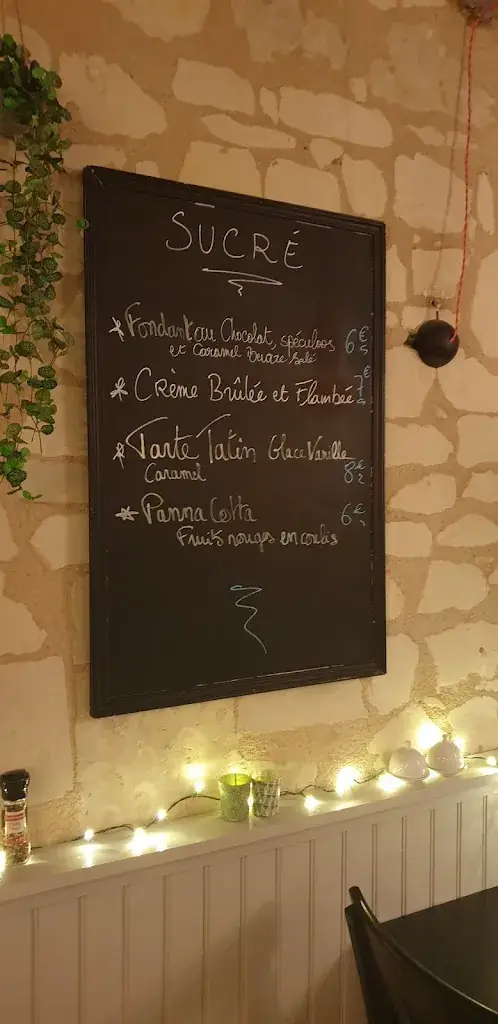 SUCRÉ
* Fondant au Chocolat, spéculoos 6€
et Caramel Beurre Salé
* Crème Brûlée et Flambée 7€
* Tarte Tatin Glace Vanille
Caramel 8€
* Panna Cotta 6€
Fruits rouges en coulis